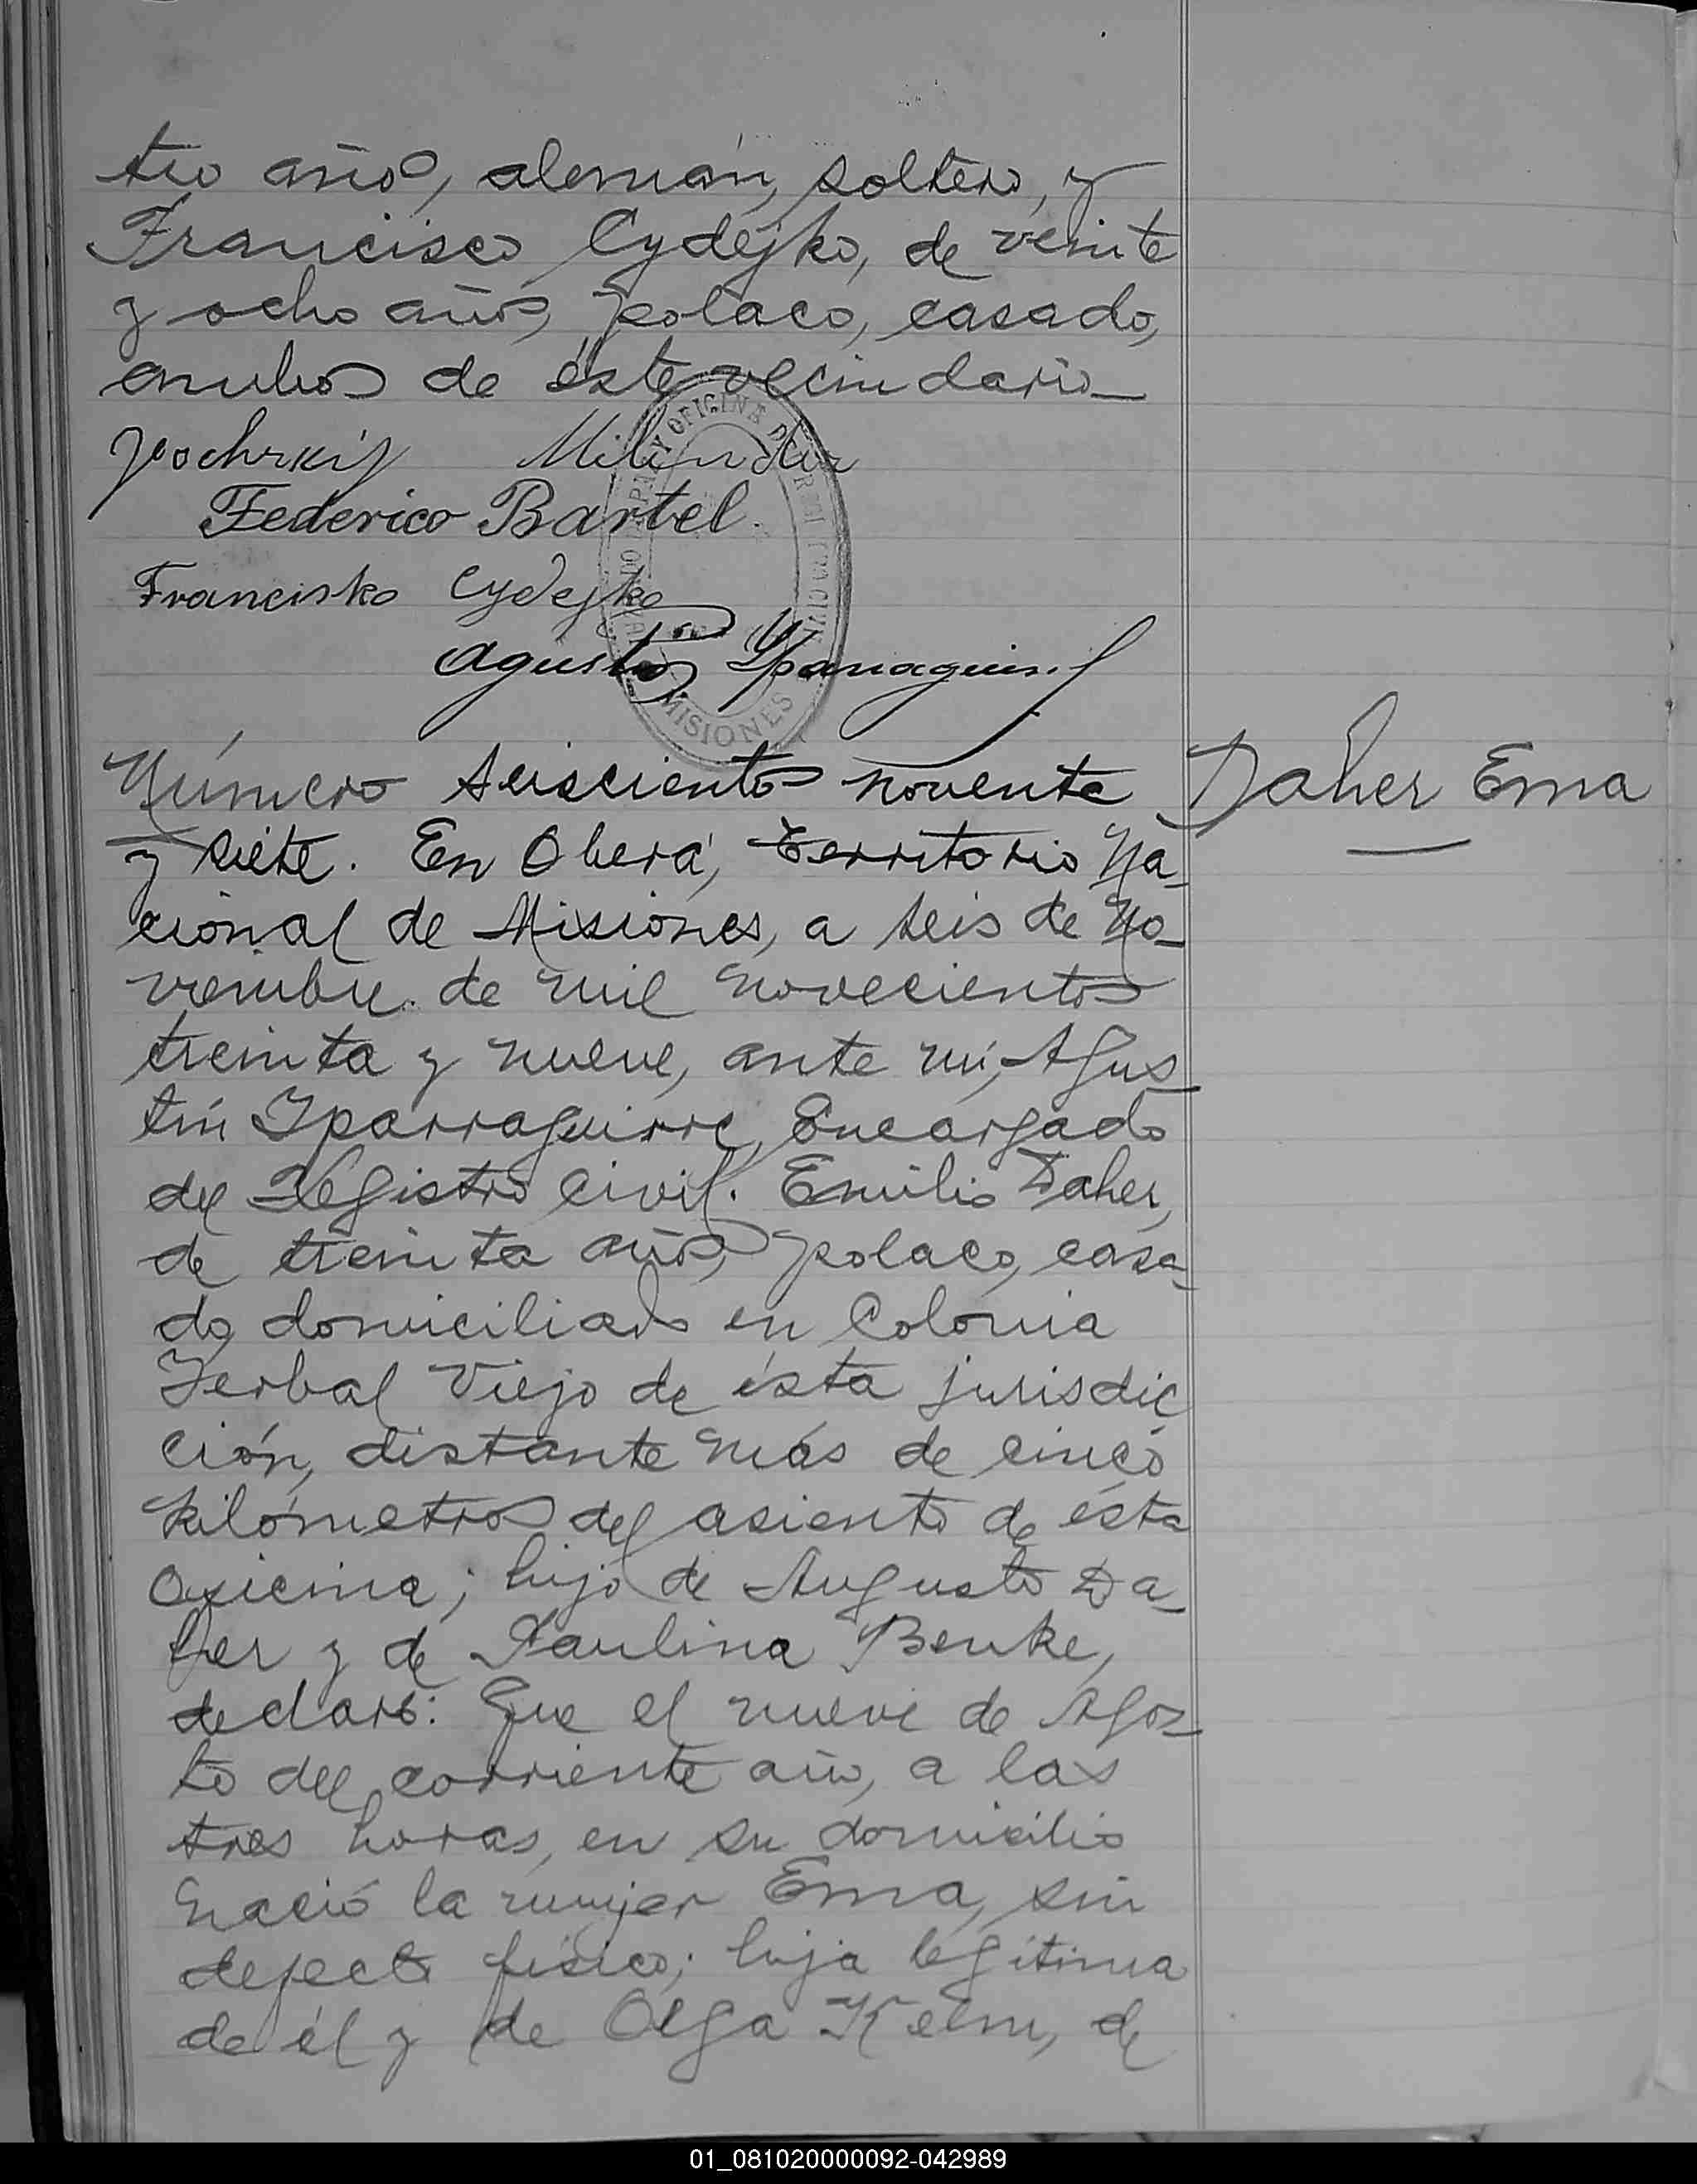 tro años, alemán, soltero, y
Francisco Cydejko, de veinte
y ocho años, polaco, casado,
ambos de éste vecindario_
Federico Bartel
Francisko Cydejko
MISIONES
Número seiscientos noventa
y siete. En Oberá, Territorio Na_
cional de Misiones, a seis de No_
viembre de mil novecientos
treinta y nueve, ante mí, Agus_
tín Iparraguirre, Encargado
del Registro Civil. Emilio Daher,
de treinta años, polaco, casa_
do, domiciliado en Colonia
Yerbal Viejo de ésta jurisdic
ción, distante más de cinco
kilómetros del asiento de ésta
Oficina; hijo de Augusto Da_
her y de Paulina Benke,
declaró: Que el nueve de Agos_
to del corriente año, a las
tres horas, en su domicilio
nació la mujer Ema, sin
defecto físico; hija legítima
de él y de Olga Kelm, de
Daher Ema
01_081020000092-042989